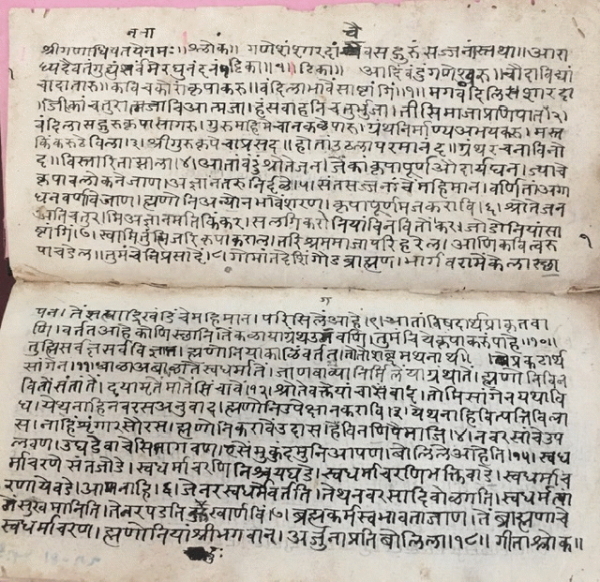 नमा चै
श्रीगणाधिपतयेनमः॥श्लोक॥ गणेशंशारदां चैवसद्गुरुंसज्जनांस्तथा॥आरा
ध्यदैवतंगुह्यंसर्वमेरघुनंदनं॥१॥टिका॥ आदिवंदुगणेश्वरू॥चौदाविद्यां
चादातारू॥कविचकोराकृपाकरू॥वंदिलाभावेंसाष्टांगिं॥१॥मगवंदिलिसशारदा
जिकांचतुराननाचिआत्मजा।हंसवाहनिचतुर्भुजा।तीसिमाजाप्रणिपात॥२॥
वंदिलासद्गुरुकृपासागरु।गुरुमहिमेचानकळेपारु।ग्रंथनिर्माण्यअभयकरु।मस्त
किंकरुठेविला।३।श्रीगुरुकृपेचाप्रसाद।होतांउठलापरमानंद।ग्रंथरचनाविनो
द।विस्तारिताझाला।४।आतांवंदुश्रोतेजन।जेकांकृपापूर्णऔदार्यघन।ज्याचे
कृपावलोकनेजाण।अज्ञानतरुनिर्दळे॥५॥संतसज्जनाचेंमहिमान।वर्णितांअगा
धनवर्णवेजाण।ह्मणोनिअन्यानभावेंशरण।कृपापूर्णमजकरावि।६।श्रोतेजन
अतिचतुर।मिअज्ञानमतिकिंकर।सलगिकरोनियांविनवितोंकर।जोडोनियांसा
ष्टांगिं।७।स्वामितुंह्मिजरिकृपाकराल।तरिश्रममाजापरिहरेल।आणिकवित्वरु
पाचढेल॥तुमचेनिप्रसादें।८।गोमांतदेशिंगोडब्राह्मण।भार्गवरामेंकेलास्छा
१
ग
पन। तेंजाह्याद्रिखंडिंचेमहिमान।परिसिलेंआहे।९।आतांविषदार्थप्राकृतवा
णि।वर्ततआहेकोणिस्छानि।तेंकळायाग्रंथउभवणि।तुमचियकृपाकरुंपाहे॥१०॥
तुह्मिसर्वज्ञसर्वविज्ञान।ह्मणोनियाकाळिंवर्ततु।तोतोशब्दमथनार्थ।प्रकटार्थ
सांगेन।११।बाळाअबाळांतेस्वधर्मति।जाणवाव्यानिर्मिलेयाग्रथातें।ह्मणोनिविन
वितोंसंतांतें।दयामृतेंमातेंसिंचावें।१२।श्रोतेवक्तेयांचासंवाद।तोमिसांगेनयथावि
ध।येथनाहिनवरसअनुवाद।ह्मणोनिउपेक्षानकरावि।३।येथनाहिवित्पत्तिविला
स।नाहिश्रृंगारसोरस।ह्मणोनिकरावेंउदासहेंविनणिपेमाजि।४।नवरसांचेउप
लवण।उघडेवाचेसिभागवण।ऐसेमुकुंदमुनिआपण।बोलिलेआहेति॥१५॥स्वध
र्माचरणेंसंतजोडे।स्वधर्माचरणिंनिश्चयघडे।स्वधर्माचरणिंभक्तिवाढे।स्वधर्माच
रणायेवढें।आननाहि।६।जेनरस्वधर्मेवर्तति।तेथनवरसादिवोळगति।स्वधर्मत्या
गेंसुखमानिति।तेनरपडतिदुःखार्णविं।७।ब्रह्मकर्मस्वभावताजाण।तेंब्राह्मणाचें
स्वधर्माचरण।ह्मणोनियाश्रीभगवान।अर्जुनाप्रतिबोलिला।१८।गीताश्लोक॥